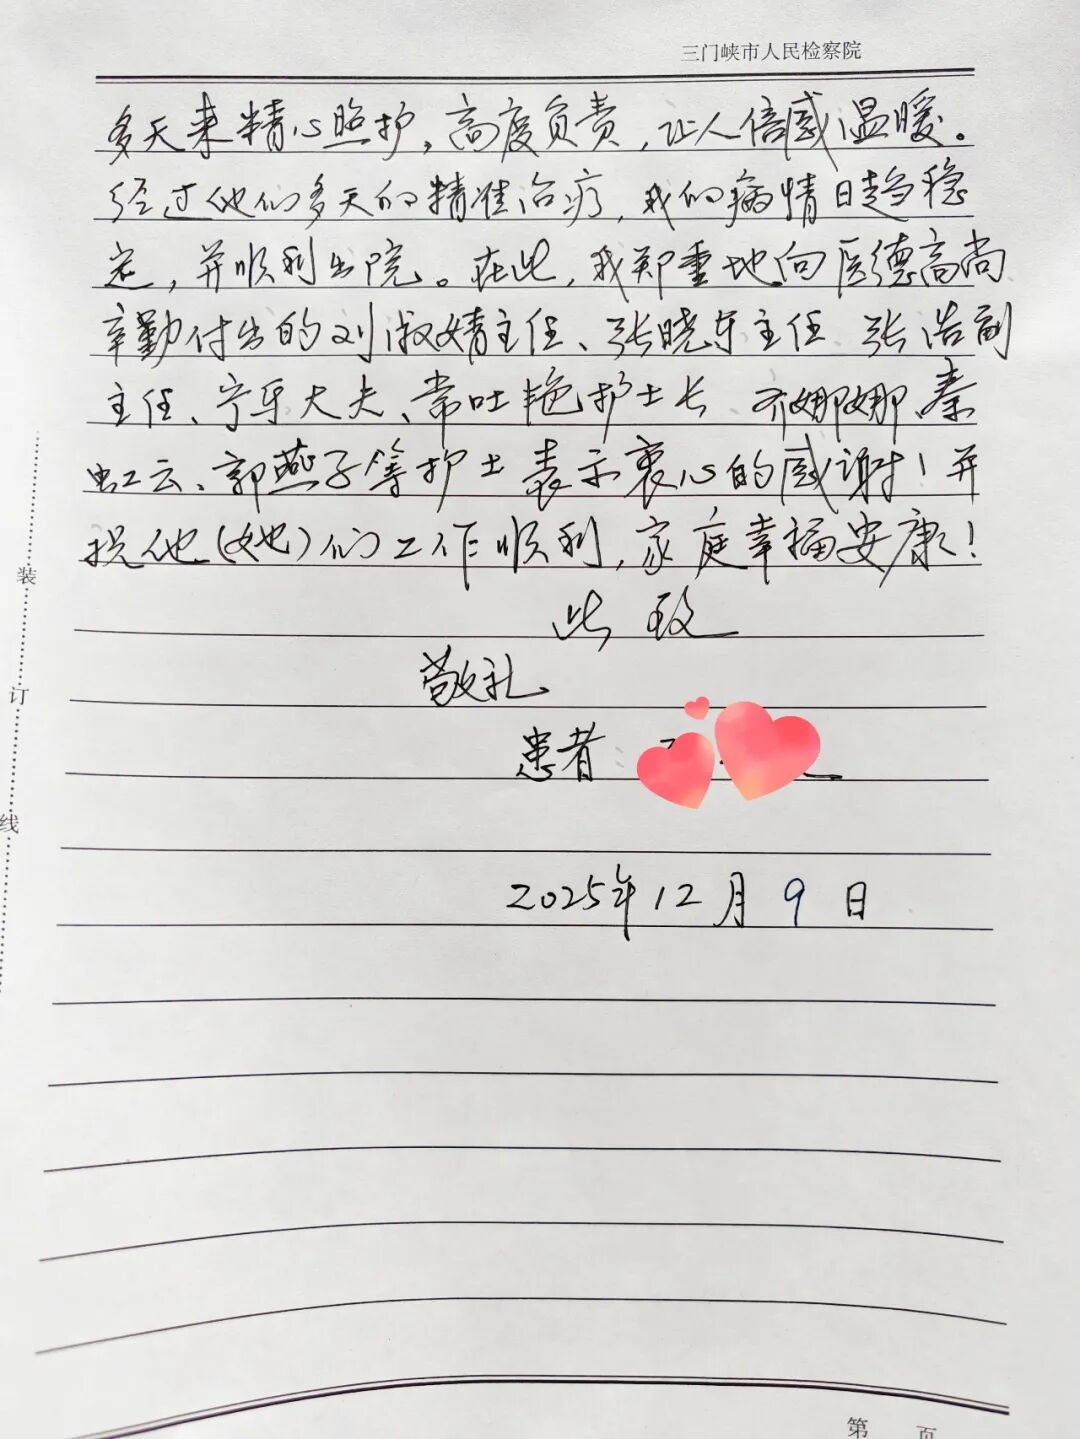 三门峡市人民检察院
多天来精心照护，高度负责，让人倍感温暖。
经过他们多天的精准治疗，我的病情日趋稳
定，并顺利出院。在此，我郑重地向医德高尚
辛勤付出的刘淑婧主任、张晓东主任 张浩副
主任、宁军大夫、常吐艳护士长 乔娜娜、秦
虹云、郭燕子等护士表示衷心的感谢！并
祝他（她）们工作顺利，家庭幸福安康！
此致
敬礼
患者
2025年12月9日
装
订
线
第 页